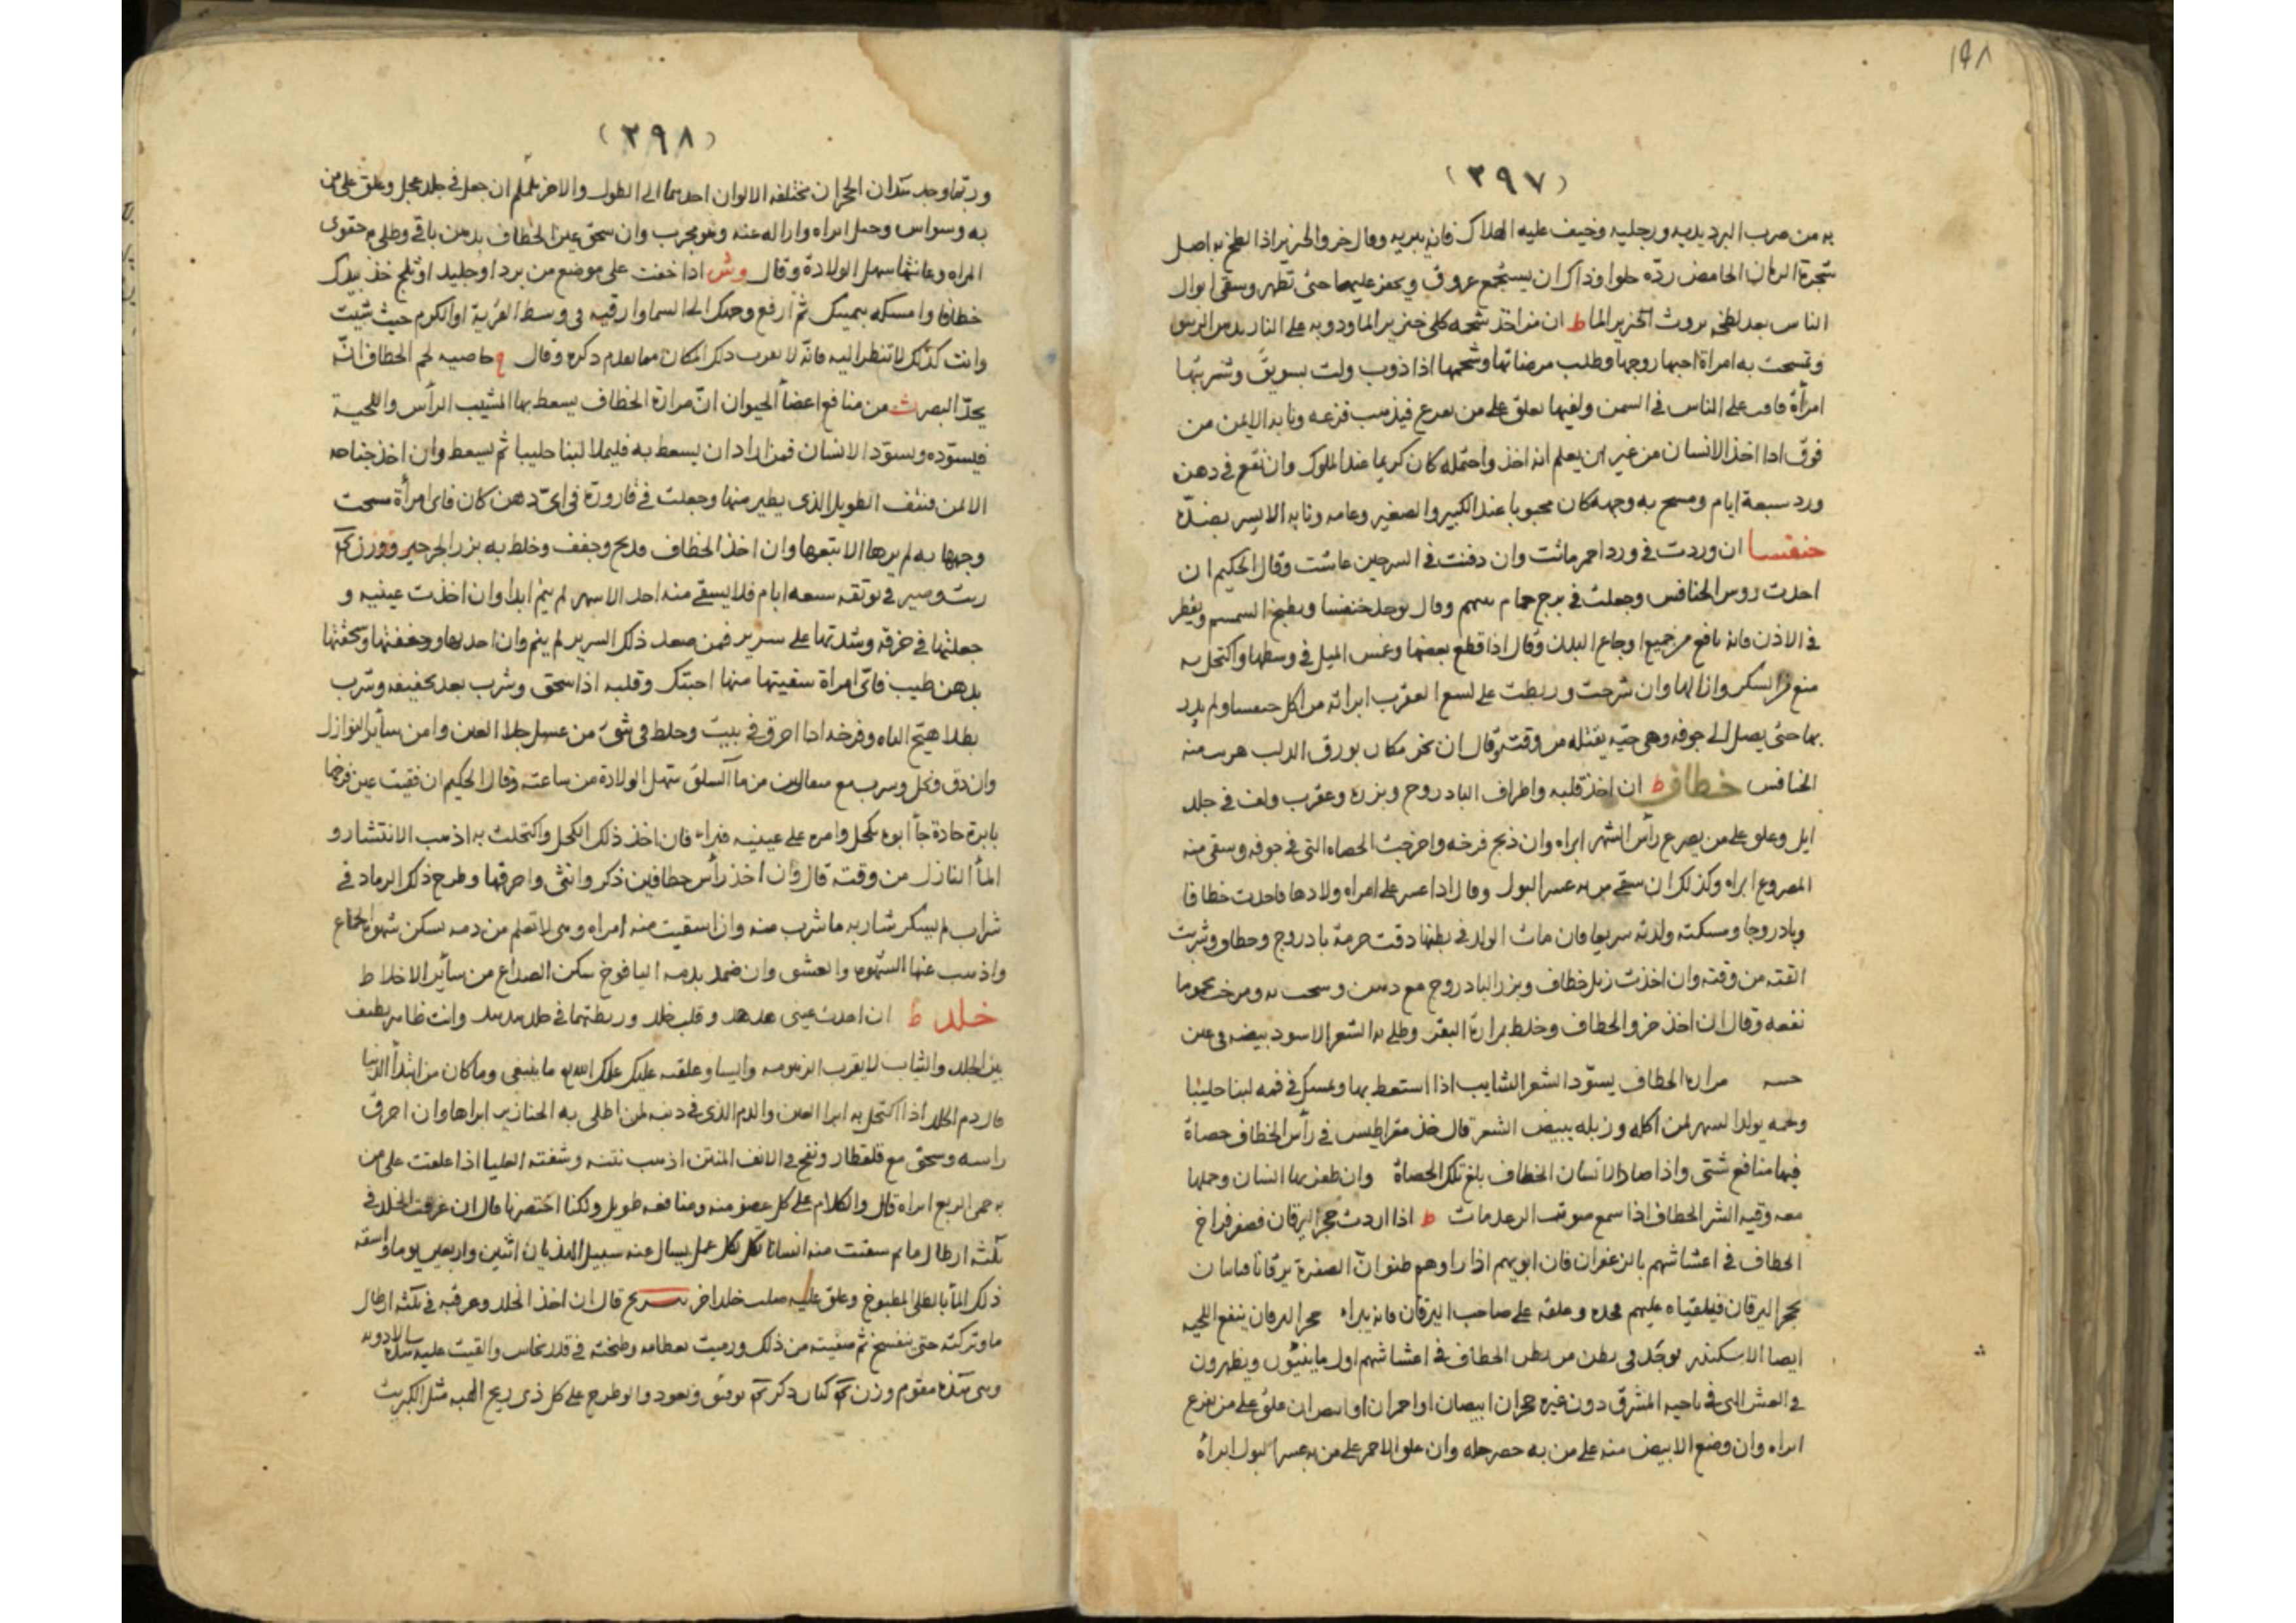 ١٩٨
(٣٩٧)
به من ضرب البرد يديه ورجليه وخيف عليه الهلاك فانه يبريه وقال خرو الخنزير اذا لطخ به اصل
شجرة الرمان الحامض ردّه حلوا وذاك ان يستجمع عروق ويحفر عليها حتى تظهر وسقى ابوال
الناس بعد لطخه بروث الخنزير الما ط ان من اخذ شحمه كلى خنزير الما ودوبه على النار بدهن
وتمسحت به امراة احبها زوجها وطلب مرضاتها وشحمها اذا ذوب ولت بسويق وشربتها
امرأة فاقت على الناس في السمن ولفها يعلق على من يفزع فيذهب فزعه ونابه الايمن من
فوق اذا اخذ الانسان من غير ان يعلم انه اخذ واحتمله كان كريما عند الملوك وان نقع في دهن
ورد سبعة ايام ومسح به وجهه كان محبوبا عند الكبير والصغير وعامه ونابه الايسر بضدّه
خنفسا ان وردت في ورد احمر ماتت وان دفنت في السرجين عاشت وقال الحكيم ان
احدت روس الخنافس وجعلت في برج حمام وقال يوخذ خنفسا ويطبخ السمسم ويقطر
في الاذن فانه نافع من جميع اوجاع البدن وقال اذا قطع بعضها وغمس الميل في وسطها واكتحل به
منع من السكر وازالها وان شرحت وربطت على لسع العقرب ابراته من اكل خنفسا ولم يدر
بها حتى يصل الى جوفه وهي حيّه يقتله من وقته وقال ان بخر مكان بورق الدلب هرب منه
الخنافس خطاف ط ان اخذ قلبه واطراف البادروج وبزره وعقرب ولف في جلد
ايل وعلق على من يصرع رأس الشهر ابراه وان ذبح فرخه واخرجت الحصاه التي في جوفه وسقى منه
المصروع ابراه وكذلك ان سقى من به عسر البول وقال اذا عسر على امراه ولادها فاحدت خطافا
وبادروجا ومسكته ولدته سريعا فان مات الولد في بطنها دقت حزمة بادروج وخطاف وشربت
القته من وقته وان اخذت زبل خطاف وبزر البادروج مع دهن وسحت به ومرخت محموما
نفعه وقال ان اخذ خرو الخطاف وخلط بمرارة البقر وطلى به الشعر الاسود بيضه في عين
مراره الخطاف يسوّد الشعر الشايب اذا استعط بها ويمسك في فمه لبنا حليبا
ولحمه يولد السهر لمن اكله وزبله يبيض الشعر قال في رأس الخطاف حصاة
فيها منافع شتى واذا صاد الانسان الخطاف بلع تلك الحصاة وان ظفر بها انسان وحملها
معه وقيه الشر الخطاف اذا سمع صوت الرعد مات ط اذا اردت حجر اليرقان فصفر فراخ
الخطاف في اعشاشهم بالزعفران فان ابويهم اذا راوهم ظنوا انّ الصفرة يرقانا فياتيان
بحجر اليرقان فيلقياه عليهم فخذه وعلقه على صاحب اليرقان فانه يبراه حجر اليرقان ينفع
ايضا الاسكندر يوخذ في بطن من بطن الخطاف في اعشاشهم اول ما ينبتون ويظهرون
في العش الذي في ناحيه المشرق دون غيره حجران ابيضان او احمران او ابيض ان علق على من يفزع
ابراه وان وضع الابيض منه على من به حصر حله وان علق الاحمر على من به عسر البول ابراه
(٣٩٨)
وربما وجد هذان الحجران مختلفه الالوان احدهما الى الطول والاخر ململم ان جعل في جلد عجل وعلق على من
به وسواس وحبل ابراه وازاله عنه وهو مجرب وان سحق عين الخطاف بدهن باقى وطلى به حقوى
المراه وعانتها سهل الولادة وقال وش اذا خفت على موضع من برد او جليد او ثلج خذ بيدك
خطافا وامسكه بيمينك ثم ارفع وجهك الى السما وارقيه في وسط القرية او الكرم حيث شيت
وانت كذلك لا تنظر اليه فانّه لا يقرب ذلك المكان مما تقدم ذكره وقال خاصيه لحم الخطاف انّه
يحدّ البصر ث من منافع اعضأ الحيوان انّ مرارة الخطاف يسعط بها المشيب الرأس واللحية
فيسوّده ويسوّد الانسان فمن اراد ان يسعط به فليملا لبنا حليبا ثم يسعط وان اخذ جناحه
الايمن فنتف الطويل الذي يطير منها وجعلت في قارورة في اىّ دهن كان فاى امرأة مسحت
وجهها به لم يرها الا تبعها وان اخذ الخطاف وذبح وجفف وخلط به بزر الجرجير ووزن
زيت وصير في بوتقه سبعه ايام فلا يسقى منه احد الا سهر لم ينم ابدا وان اخذت عينيه و
جعلتها في خرقه وشدتها على سرير فمن صعد ذلك السرير لم ينم وان اخذتها وجففتها وسحقتها
بدهن طيب فاىّ امراة سقيتها منها احبتك وقلبه اذا سحق وشرب بعد تجفيفه وشرب
بطلا هيّج الباه وفرخه اذا احرق في بيت وخلط في شئ من عسل جلا العين وامن سأير النوازل
وان دق ونخل وشرب مع مثقالين من مأ السلق سهل الولادة من ساعته وقال الحكيم ان فقيت عين فرخها
بابرة حادة جأ ابوه بكحل وامره على عينيه فبراه فان اخذ ذلك الكحل واكتحلت به اذهب الانتشار و
المأ النازل من وقته قال وان اخذ رأس خطافين ذكر وانثى واحرقها وطرح ذلك الرماد في
شراب لم يسكر شاربه ما شرب منه واذا سقيت منه امراه وهي لا تعلم من دمه سكن شهوة الجماع
واذهب عنها الشهوه والعشق وان ضمد بدمه اليافوخ سكن الصداع من سأير الاخلاط
خلد ط ان اخذت عيني هدهد وقلب خلد وربطتهما في جلد هدهد وانت طاهر نظيف
بين الجلد والثياب لا يقرب الزهومه والنسا وعلقته عليك علمك الله ما يخفى وما كان من ابتدأ الدنيا
قال دم الخلد اذا اكتحل به ابرا العين والدم الذي في ذنبه لمن اطلى به الخنازير ابراها وان احرق
راسه وسحق مع قلقطار ونفخ في الانف المنتن اذهب نتنه وشفته العليا اذا علقت على من
به حمى الربع ابراه قال والكلام على كل عضو منه ومنافعه طويل ولكنا اختصرنا قال ان غرقت الخلد في
ثلثه ارطال ما ثم سقيت منه انسانا تكلم بكل عمل يسال عنه سبيل الهذيان اثنين واربعين يوما واسقه
ذلك المأ بالطلى المطبوخ وعلق عليه قلب خلد اخر يستريح قال ان اخذ الخلد وغرقته في ثلثه ارطال
ما وتركته حتى يتفسخ ثم صفيته من ذلك ورميت بعظامه وطبخته في قدر نحاس والقيت عليه الادويه